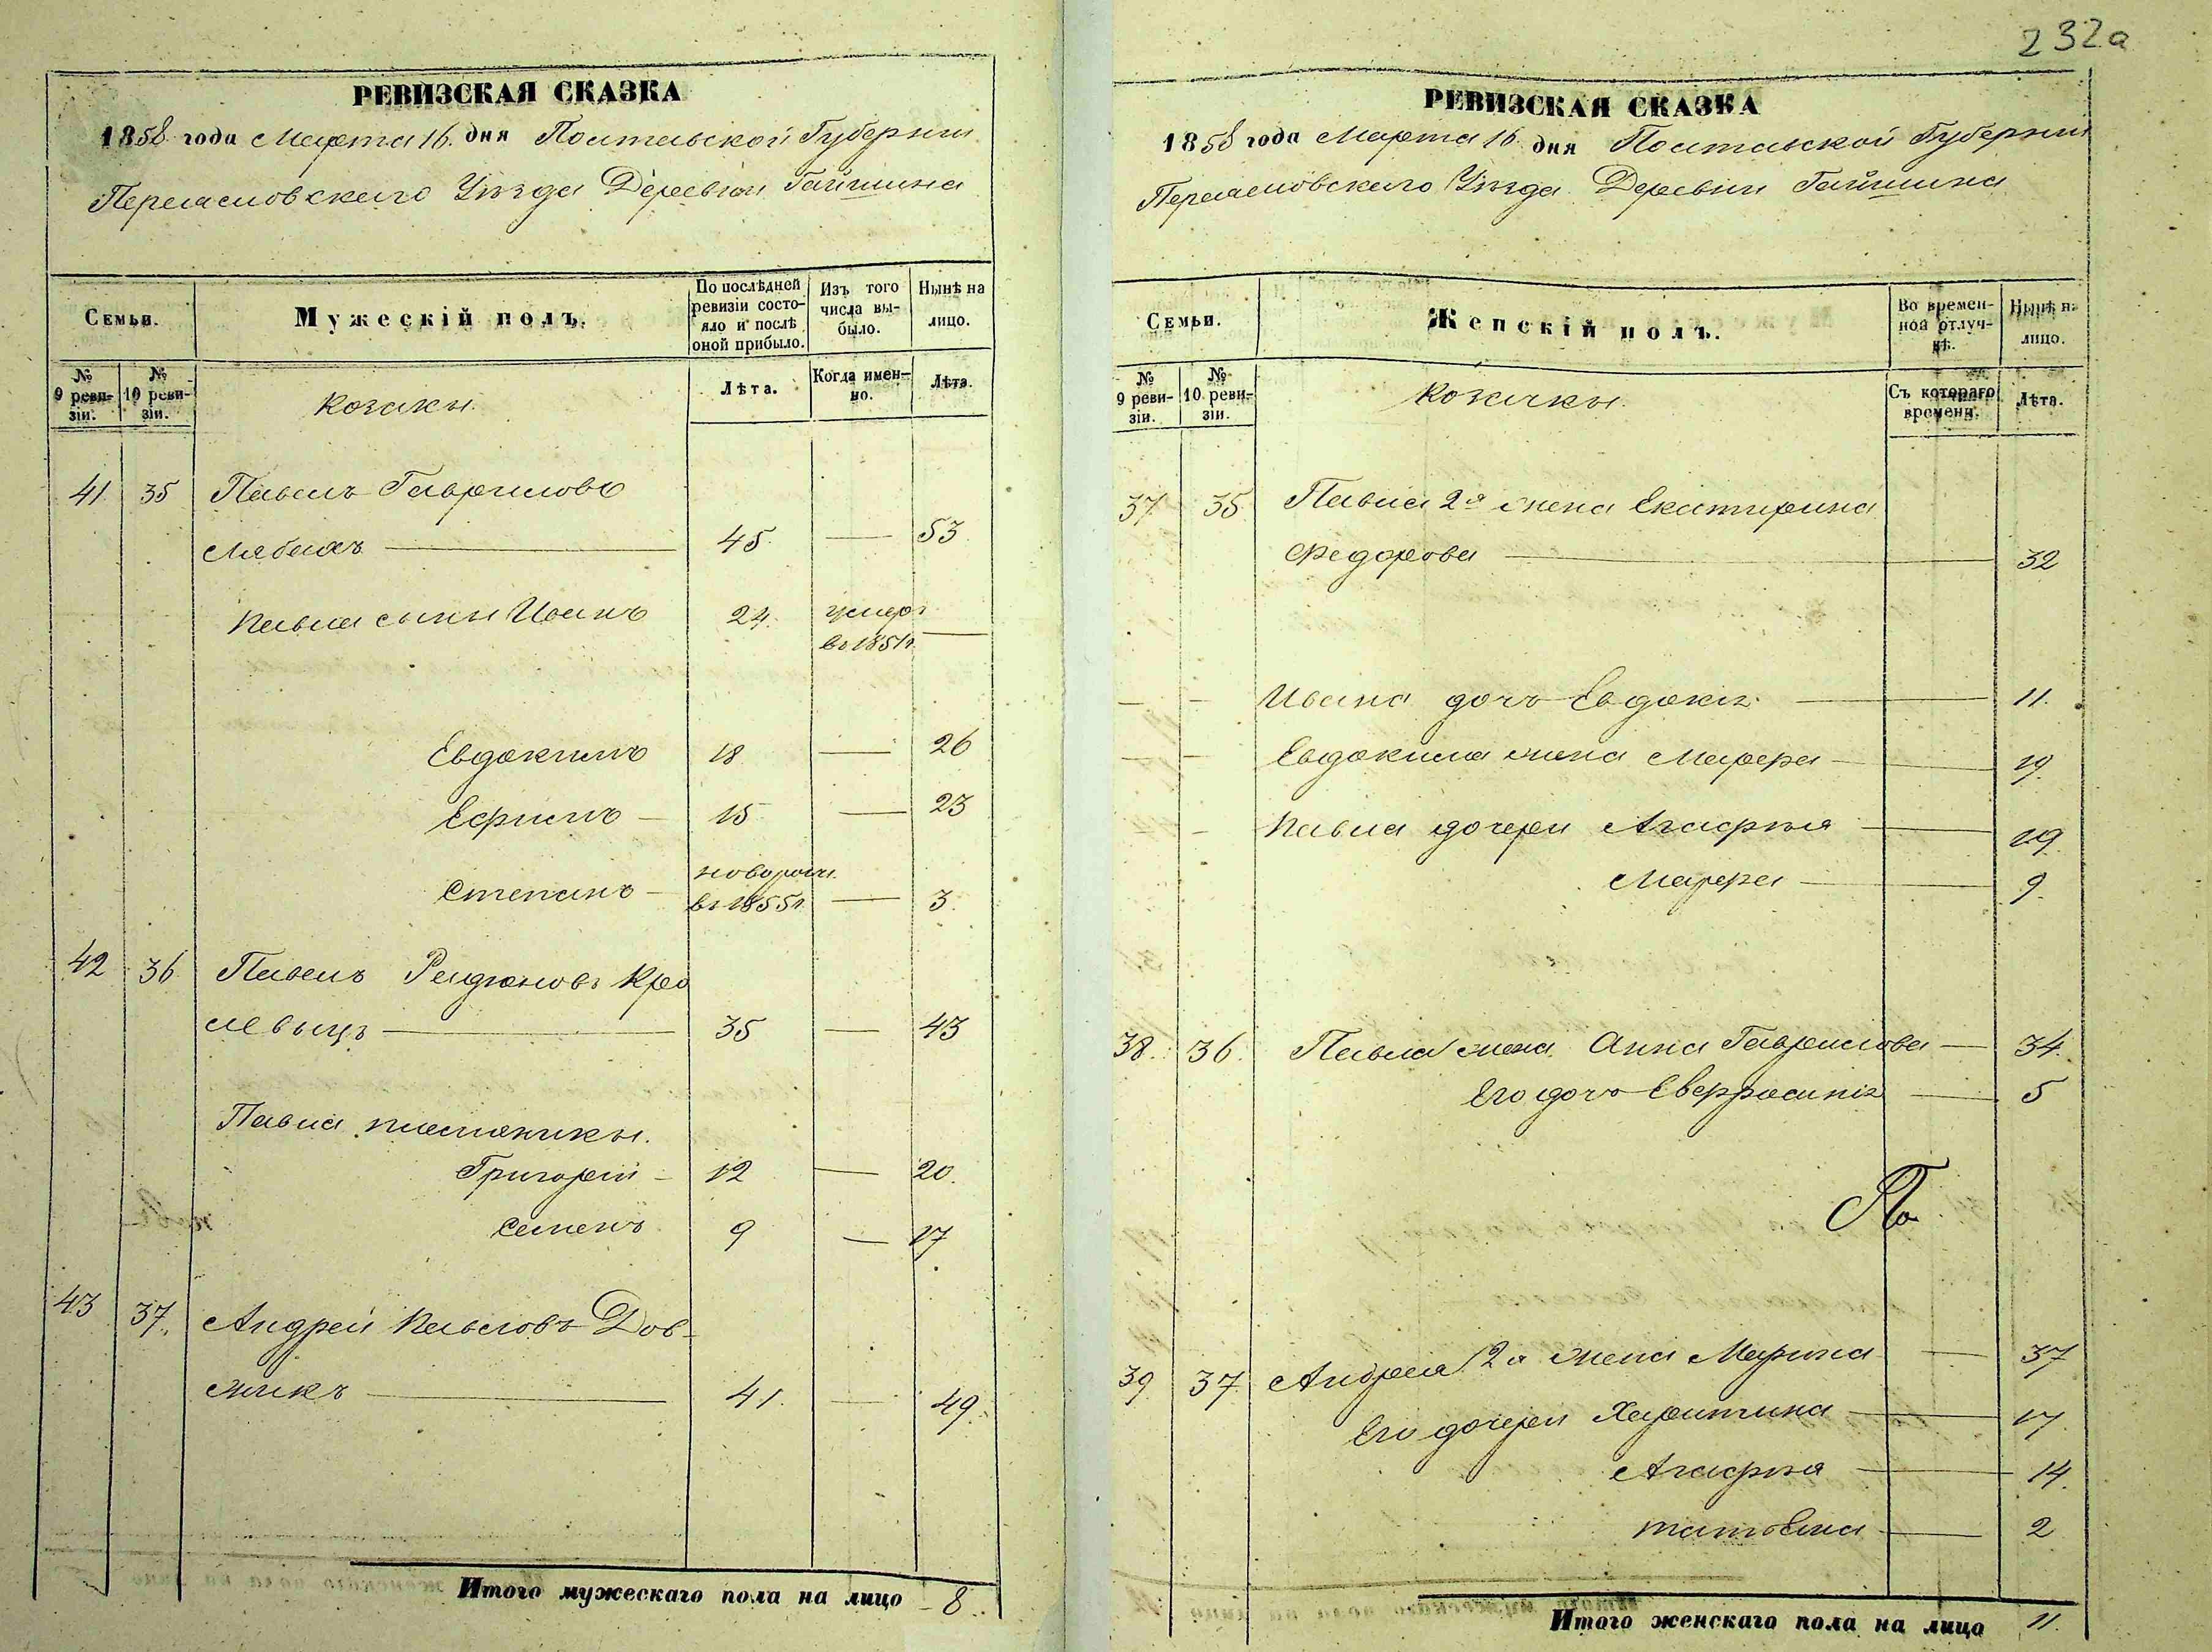 232а
РЕВИЗСКАЯ СКАЗКА
1858 года Марта 16 дня Полтавской Губернии
Переяславского Уѣзда Деревни Гайшина
Семьи.
Мужескій полъ.
По послѣдней ревизіи состояло и послѣ оной прибыло.
Изъ того числа выбыло.
Нынѣ на лицо.
№ 9 ревизіи.
№ 10 ревизіи.
Козаки.
Лѣта.
Когда именно.
Лѣта.
41 35 Павелъ Гавриловъ
Лябахъ 45 — 53
Павла сыны Иванъ 24 умеръ
въ 1851г —
Евдокимъ 18 — 26
Ефимъ 15 — 23
Степанъ новорожд.
въ 1855г. — 3
42 36 Павелъ Радионовъ Кро
левыцъ 35 — 43
Павла племяники.
Григорій 12 — 20
Семенъ 9 — 17
43 37 Андрей Павловъ Дов-
жикъ 41 — 49
Итого мужескаго пола на лицо 8
РЕВИЗСКАЯ СКАЗКА
1858 года Марта 16 дня Полтавской Губерніи
Переяславского Уѣзда Деревни Гайшина
Семьи.
Женскій полъ.
Во временной отлучкѣ.
Нынѣ на лицо.
№ 9 ревизіи.
№ 10 ревизіи.
Козачки.
Съ котораго времени.
Лѣта.
37 35 Павла 2я жена Екатирина
Федорова — 32
— — Ивана дочь Евдокія — 11
— — Евдокима жена Марфа — 19
— Павла дочери Агафія — 19
Марфа — 9
38 36 Павла жена Анна Гаврилова — 34
Его дочь Евфросинія — 5
По
39 37 Андрея 2я жена Марина — 37
Его дочери Харитина — 17
Агафія — 14
Татьяна — 2
Итого женскаго пола на лицо 11